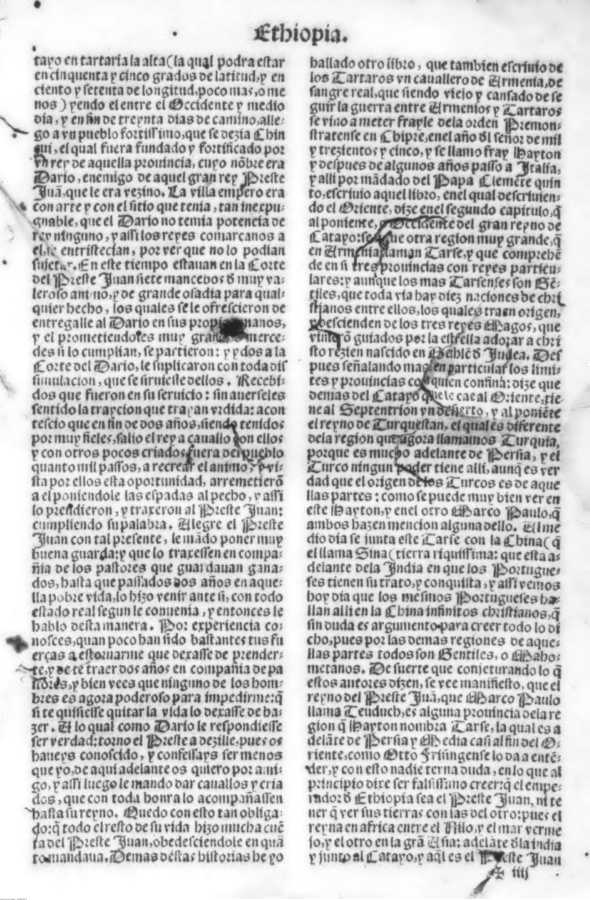 Ethiopia.
tayo en tartaria la alta (la qual podra estar
en cinquenta y cinco grados de latitud, y en
ciento y setenta de longitud, poco mas, o me
nos) yendo el entre el Occidente y medio
dia, y en fin de treynta dias de camino, alle-
go a vn pueblo fortissimo, que se dezia Chin
gui, el qual fuera fundado y fortificado por
vn rey de aquella prouincia, cuyo nõbre era
Dario, enemigo de aquel gran rey Preste
Juã, que le era vezino. La villa empero era
con arte y con el sitio que tenia, tan inexpu-
gnable, que el Dario no temia potencia de
rey ninguno, y assi los reyes comarcanos a
el, se entristecian, por ver que no lo podian
sujetar. En este tiempo estauan en la Corte
del Preste Juan siete mancebos õ muy va-
leroso animo, y de grande osadia para qual-
quier hecho, los quales se le ofrescieron de
entregalle al Dario en sus propias manos,
y el prometiendoles muy grandes merce-
des si lo cumplian, se partieron: y ydos a la
Corte del Dario, le suplicaron con toda dis
simulacion, que se siruieste dellos. Recebi-
dos que fueron en su seruicio: sin auerseles
sentido la traycion que trayan vrdida: acon
tescio que en fin de dos años, siendo tenidos
por muy fieles, salio el rey a cauallo con ellos
y con otros pocos criados, fuera del pueblo
quanto mil passos, a recrear el animo, y vi-
sta por ellos esta oportunidad, arremetierõ
a el poniendole las espadas al pecho, y assi
lo prendieron, y traxeron al Preste Juan:
cumpliendo su palabra. Alegre el Preste
Juan con tal presente, le mãdo poner muy
buena guarda: y que lo traxessen en compa-
ñia de los pastores que guardauan gana-
dos, hasta que passados dos años en aque-
lla pobre vida, lo hizo venir ante si, con todo
estado real segun le conuenia, y entonces le
hablo desta manera. Por experiencia co-
nosces, quan poco han sido bastantes tus fu
erças a estoruarme que dexasse de prender-
te, y de te traer dos años en compañia de pa
stores, y bien vees que ninguno de los hom-
bres es agora poderoso para impedirme: q̃
si te quisiesse quitar la vida lo dexasse de ha-
zer. A lo qual como Dario le respondiesse
ser verdad: torno el Preste a dezille, pues os
haueys conoscido, y confessays ser menos
que yo, de aqui adelante os quiero por ami-
go, y assi luego le mando dar cauallos y cria
dos, que con toda honra lo acompañassen
hasta su reyno. Quedo con esto tan obliga-
do: q̃ todo el resto de su vida hizo mucha cuẽ
ta del Preste Juan, obedesciendole en quã
to mandaua. Demas destas historias he yo
hallado otro libro, que tambien escriuio de
los Tartaros vn cauallero de Armenia, de
sangre real, que siendo viejo y cansado de se
guir la guerra entre Armenios y Tartaros
se vino a meter frayle de la orden Premon-
stratense en Chipre, en el año õl señor de mil
y trezientos y cinco, y se llamo fray Hayton
y despues de algunos años passo a Italia,
y alli por mãdado del Papa Clemẽte quin
to, escriuio aquel libro, en el qual descriuien-
do el Oriente, dize en el segundo capitulo, q̃
al poniente, Occidente del gran reyno de
Catayo: se que otra region muy grande, q̃
en Armenia llaman Tarse, y que comprehẽ
de en si tres prouincias con reyes particu-
lares: y aunque los mas Tarsenses son Gẽ-
tiles, que toda via hay diez naciones de chri
stianos entre ellos, los quales traen origen,
y descienden de los tres reyes Magos, que
vinierõ guiados por la estrella adorar a chri
sto rezien nascido en Bethlẽ õ Judea. Des
pues señalando mas en particular los limi-
tes y prouincias con quien confinã: dize que
demas del Catayo que le cae al Oriente, tie-
ne al Septentriõn vn desierto, y al poniẽte
el reyno de Turquestan, el qual es diferente
de la region que agora llamamos Turquia,
porque es mucho adelante de Persia, y el
Turco ningun poder tiene alli, aunq̃ es ver
dad que el origen de los Turcos es de aque
llas partes: como se puede muy bien ver en
este Hayton, y en el otro Marco Paulo, q̃
ambos hazen mencion alguna dello. Al me
dio dia se junta este Tarse con la China (q̃
el llama Sina (tierra riquissima: que esta a-
delante dela India en que los Portugue-
ses tienen su trato, y conquista, y assi vemos
hoy dia que los mesmos Portugeses ha-
llan alli en la China infinitos christianos, q̃
sin duda es argumento para creer todo lo di
cho, pues por las demas regiones de aque-
llas partes todos son Gentiles, o Maho-
metanos. De suerte que conjeturando lo q̃
estos autores dizen, se vee manifiesto, que el
reyno del Preste Juã, que Marco Paulo
llama Teuduch, es alguna prouincia de la re
gion q̃ Hayton nombra Tarse, la qual es a
delãte de Persia y Media casi al fin del O-
riente, como Otto Frisingense lo da a enten-
der, y con esto nadie terna duda, en lo que al
principio dixe ser falsissimo creer: q̃ el empe-
rador õ Ethiopia sea el Preste Juan, ni te
ner q̃ ver sus tierras con las del otro: pues el
reyna en africa entre el Nilo, y el mar verme
jo, y el otro en la grã Asia: adelãte õ la india
y junto al Catayo, y aq̃l es el Preste Juan
✠ iiij